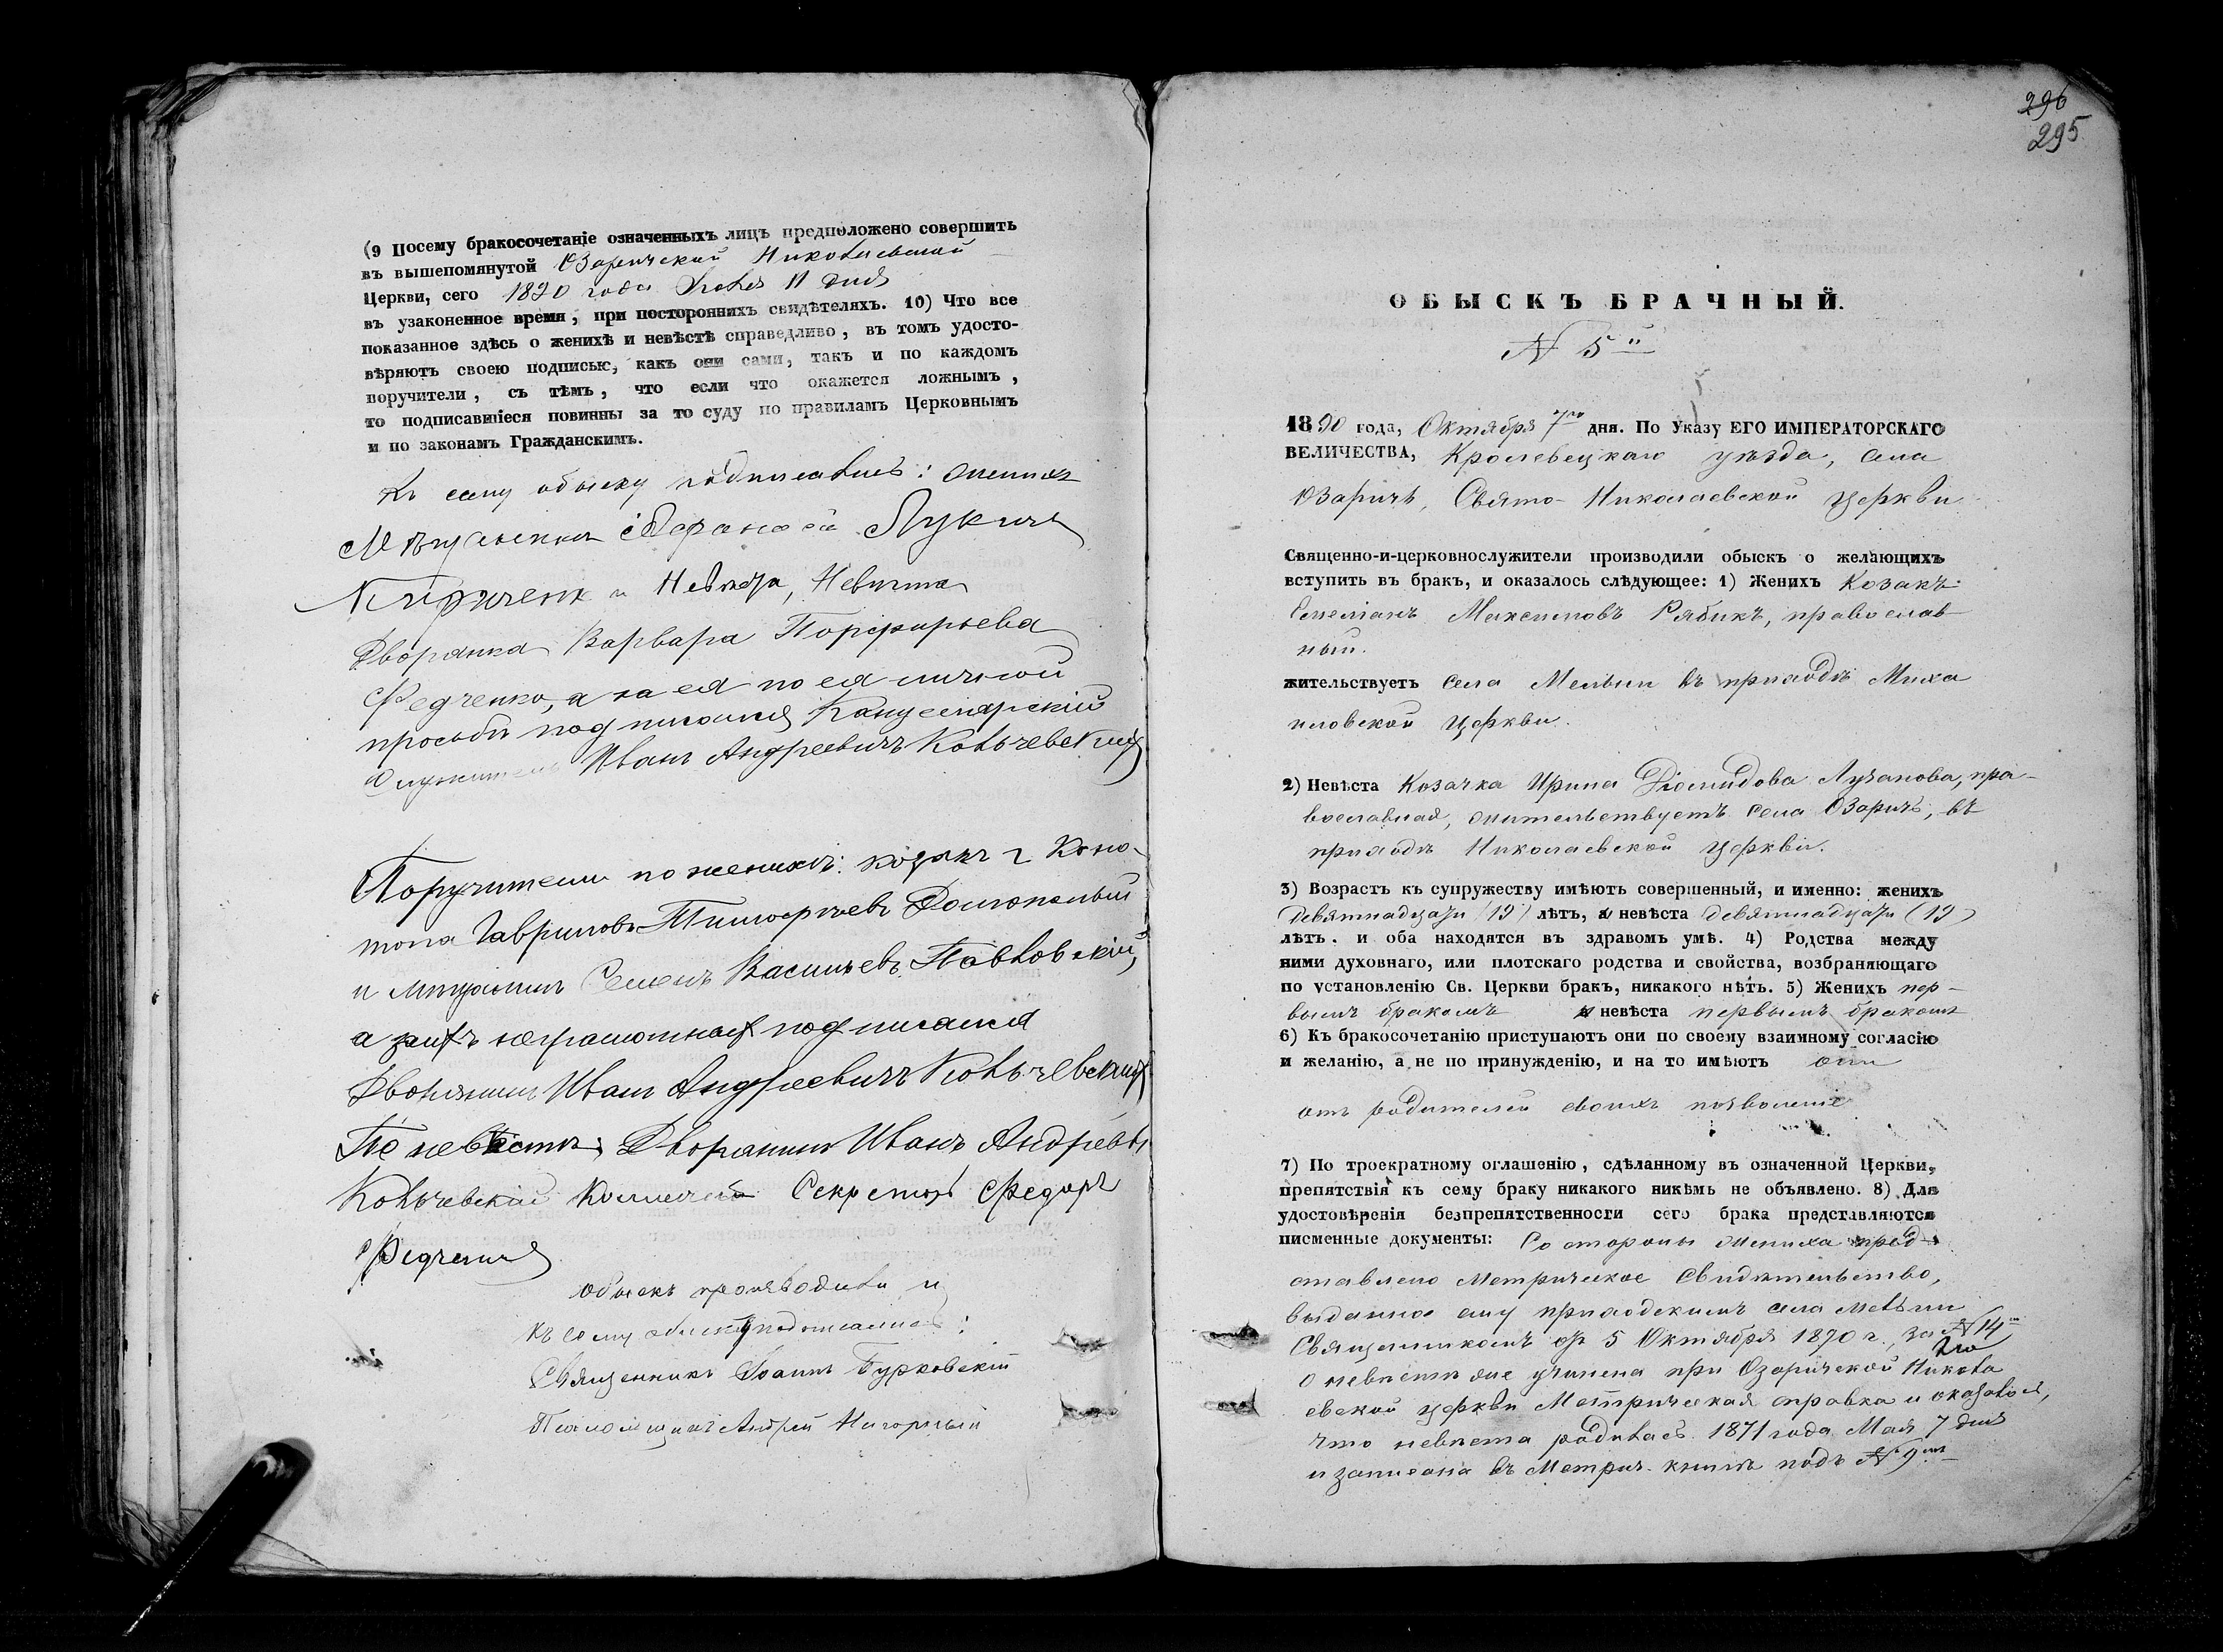 (9 Посему бракосочетаніе означенныхъ лицъ предположено совершить
въ вышепомянутой Озаричской Николаевской
Церкви, сего 1890 года Іюля 11 дня
въ узаконенное время, при постороннихъ свидѣтеляхъ. 10) Что все
показанное здѣсь о женихѣ и невѣстѣ справедливо, въ томъ удосто-
вѣряютъ своею подписью, какъ они сами, такъ и по каждомъ
поручители, съ тѣмъ, что если что окажется ложнымъ,
то подписавшіеся повинны за то суду по правиламъ Церковнымъ
и по законамъ Гражданскимъ.
Къ сему обыску подписались: Женихъ
Мѣщанинъ Афанасій Лукичъ
Невѣста
Дворянка Варвара Порфирьева
Федченко, а за ея по ея личной
прозьбѣ подписался Канцелярскій
Служитель Иванъ Андреевичъ Колычевскій
Поручители по женихѣ: козакъ г. Коно-
топа Гавриловъ Тимофѣевъ
и мѣщанинъ Семенъ Васильевъ Павловскій,
а за нихъ неграмотныхъ подписался
Дворянинъ Иванъ Андреевичъ Колычевскій
По невѣстѣ: Дворянинъ Иванъ Андреевъ
Колычевскій Коллежскій Секретарь Федоръ
Федченко
Обыскъ производили и
къ сему обыску подписались:
Священникъ Іоаннъ Бурковскій
Псаломщикъ Андрей Нагорный
296
295
ОБЫСКЪ БРАЧНЫЙ.
N 5й
1890 года, Октября 7го дня. По Указу ЕГО ИМПЕРАТОРСКАГО
ВЕЛИЧЕСТВА, Кролевецкаго уѣзда, села
Озаричъ, Свято-Николаевской церкви
Священно-и-церковнослужители производили обыскъ о желающихъ
вступить въ бракъ, и оказалось слѣдующее: 1) Женихъ Козакъ
Емеліанъ Максимовъ Рябикъ, православ-
ный.
жительствуетъ села Мельни въ приходѣ Миха
иловской церкви.
2) Невѣста Козачка Ирина Діомидова Лузанова, пра-
вославная, жительствуетъ села Озаричъ, въ
приходѣ Николаевской церкви.
3) Возрастъ къ супружеству имѣютъ совершенный, и именно: женихъ
девятнадцати (19) лѣтъ, а невѣста девятнадцати (19)
лѣтъ. и оба находятся въ здравомъ умѣ. 4) Родства между
ними духовнаго, или плотскаго родства и свойства, возбраняющаго
по установленію Св. Церкви бракъ, никакого нѣтъ. 5) Женихъ пер-
вымъ бракомъ и невѣста первымъ бракомъ
6) Къ бракосочетанію приступаютъ они по своему взаимному согласію
и желанію, а не по принужденію, и на то имѣютъ они
отъ родителей своихъ позволеніе
7) По троекратному оглашенію, сдѣланному въ означенной Церкви,
препятствія къ сему браку никакого никѣмъ не объявлено. 8) Для
удостовѣренія безпрепятственности сего брака представляются
писменные документы: Со стороны жениха пред-
ставлено Метрическое Свидѣтельство,
выданное ему приходскимъ села Мельни
Священникомъ отъ 5 Октября 1890 г., за N 14мъ
О невѣстѣ же учинена при Озаричской Никола
евской церкви Метрическая справка и оказалось,
что невѣста родилась 1871 года Мая 7 дня
и записана въ Метрич. книгѣ подъ N 9мъ